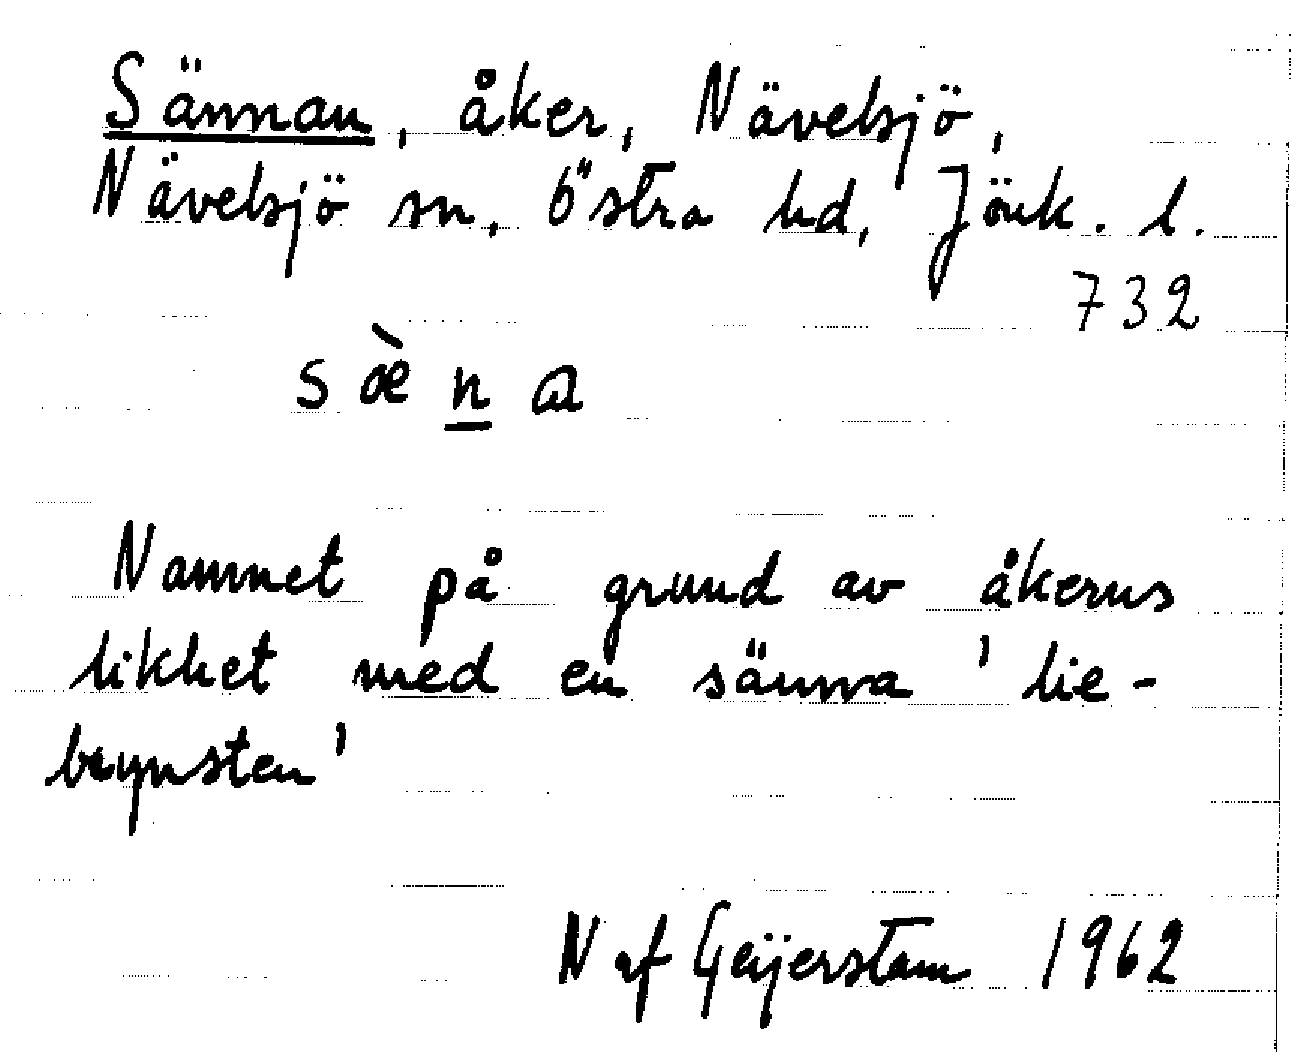 Sännan, åker, Nävelsjö,
Nävelsjö sn, Östra hd, Jönk. l.
732
s æ̀ n a
Namnet på grund av åkerns
likhet med en sänna 'lie-
brynsten'
N af Geijerstam 1962